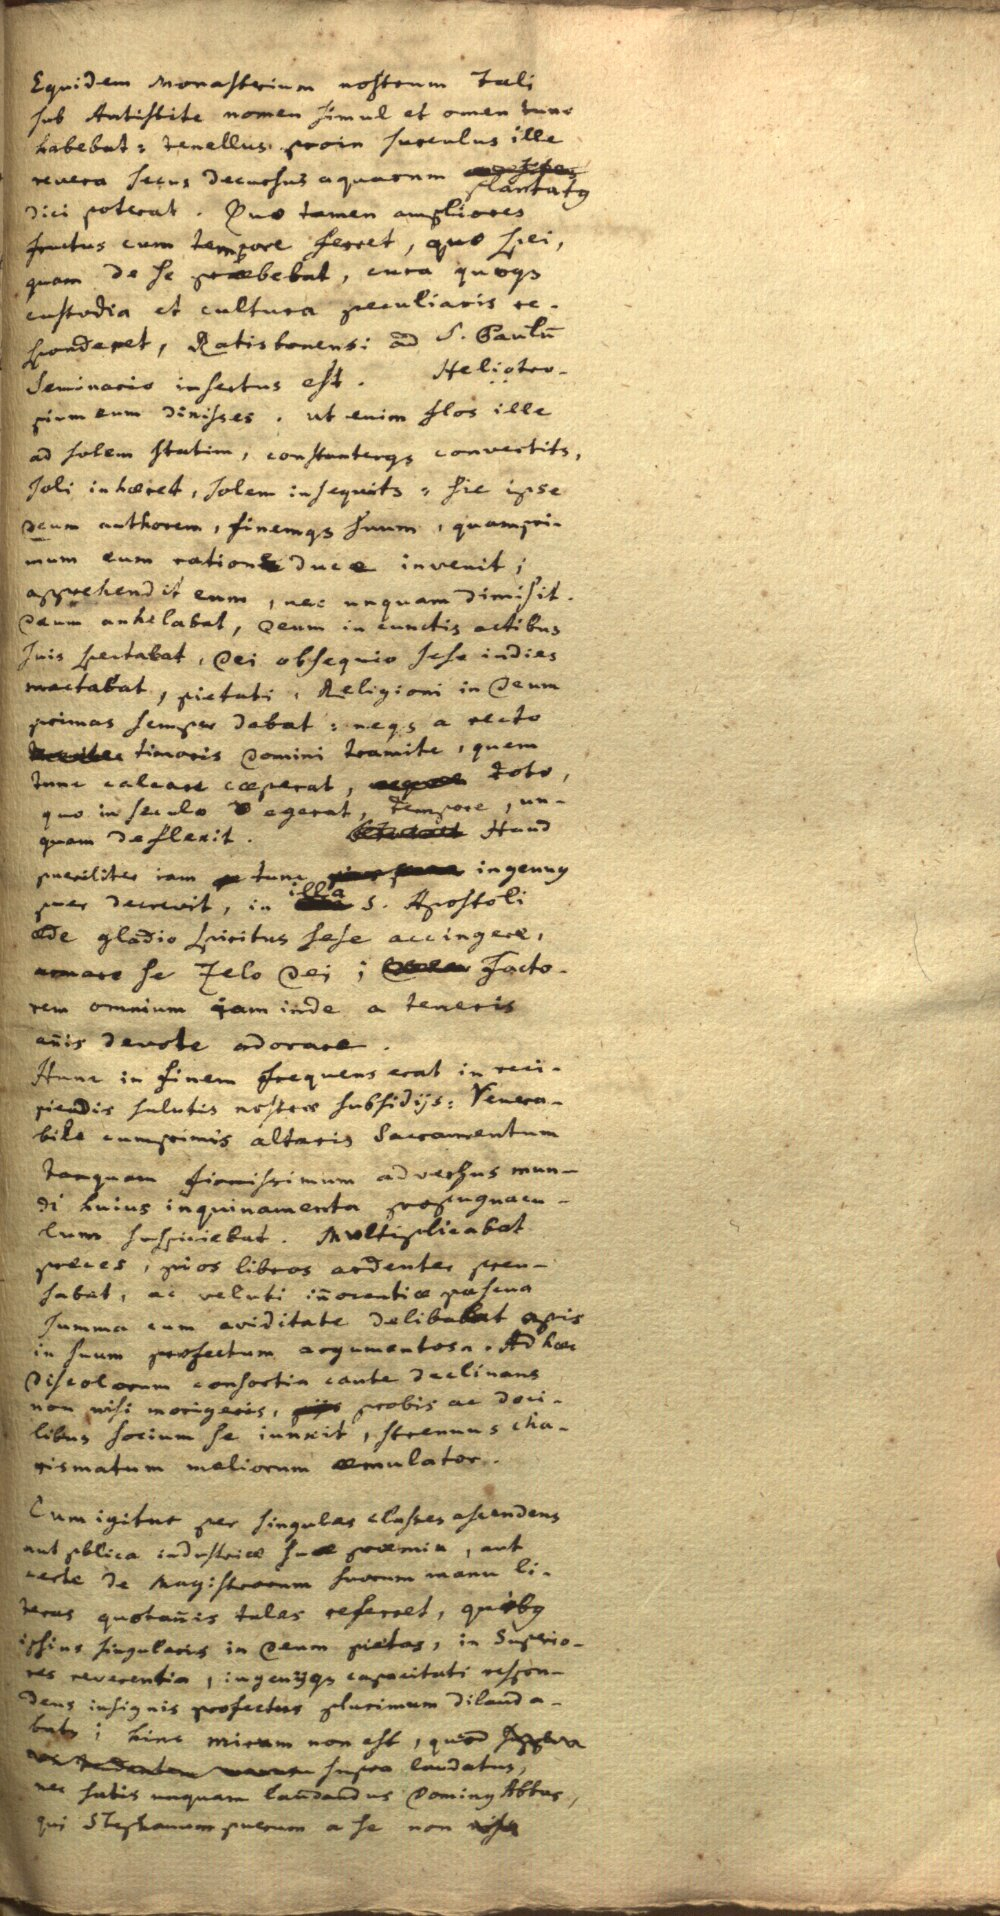 Equidem Monasterium nostrum tali
sub Antistite nomen simul et omen tunc
habebat: tenellus proin surculus ille
revera secus decursus aquarum plantatq
dici poterat. Quo tamen ampliores
fructus cum tempore ferret, quo spei,
quam de se præbebat, cura quoqs
custodia et cultura peculiaris re-
sponderet, Ratisbonensi ad S. Paulū
Seminario insertus est. Heliotro-
pium eum dixisses. ut enim flos ille
ad solem statim, constanterqs convertits,
soli inhæret, solem insequits: sic ipse
Deum authorem, finemqs suum, quampri-
mum eum ratione duce invenit;
apprehendit eum, nec unquam dimisit.
Deum anhelabat, Deum in cunctis actibus
suis spectabat, Dei obsequio sese indies
mactabat, pietati, Religioni in Deum
primas semper dabat: neqs a recto
timoris Domini tramite, quem
tunc calcare cæperat, toto,
quo in seculo degerat, tempore, un-
quam deflexit. Haud
pueriliter iam tunc ingenuq
puer decrevit, in illa S. Apostoli
æde gladio spiritus sese accingere,
armare se Zelo Dei; Facto-
rem omnium iam inde a teneris
añis devote adorare.
Hunc in finem frequens erat in reci-
piendis salutis nostræ subsidijs: Venera-
bile cumprimis altaris Sacramentum
tanquam firmissimum adversus mun-
di huius inquinamenta propugnacu-
lum suspiciebat. Multiplicabat
preces, pios libros ardenter pren-
sabat, ac veluti iñocentiæ pascua
summa cum aviditate delibabat apis
in suum profectum argumentosa. Ad hæc
Discolorum consortia caute declinans
non nisi morigeris, probis ac doci-
libus socium se iunxit, strenuus cha-
rismatum meliorum æmulator.
Cum igitur per singulas classes ascendens
aut pblica industriæ suæ præmia, aut
certe de Magistrorum suorum manu li-
teras quotañis tales referret, quibq
ipsius singularis in Deum pietas, in Superio-
res reverentia, ingenijqs capacitati respon-
dens insignis profectus plurimum dilauda-
bats; hinc mirum non est, quod
supra laudatus,
nec satis unquam laudandus Dominq Abbas,
qui Stephanum puerum a se non